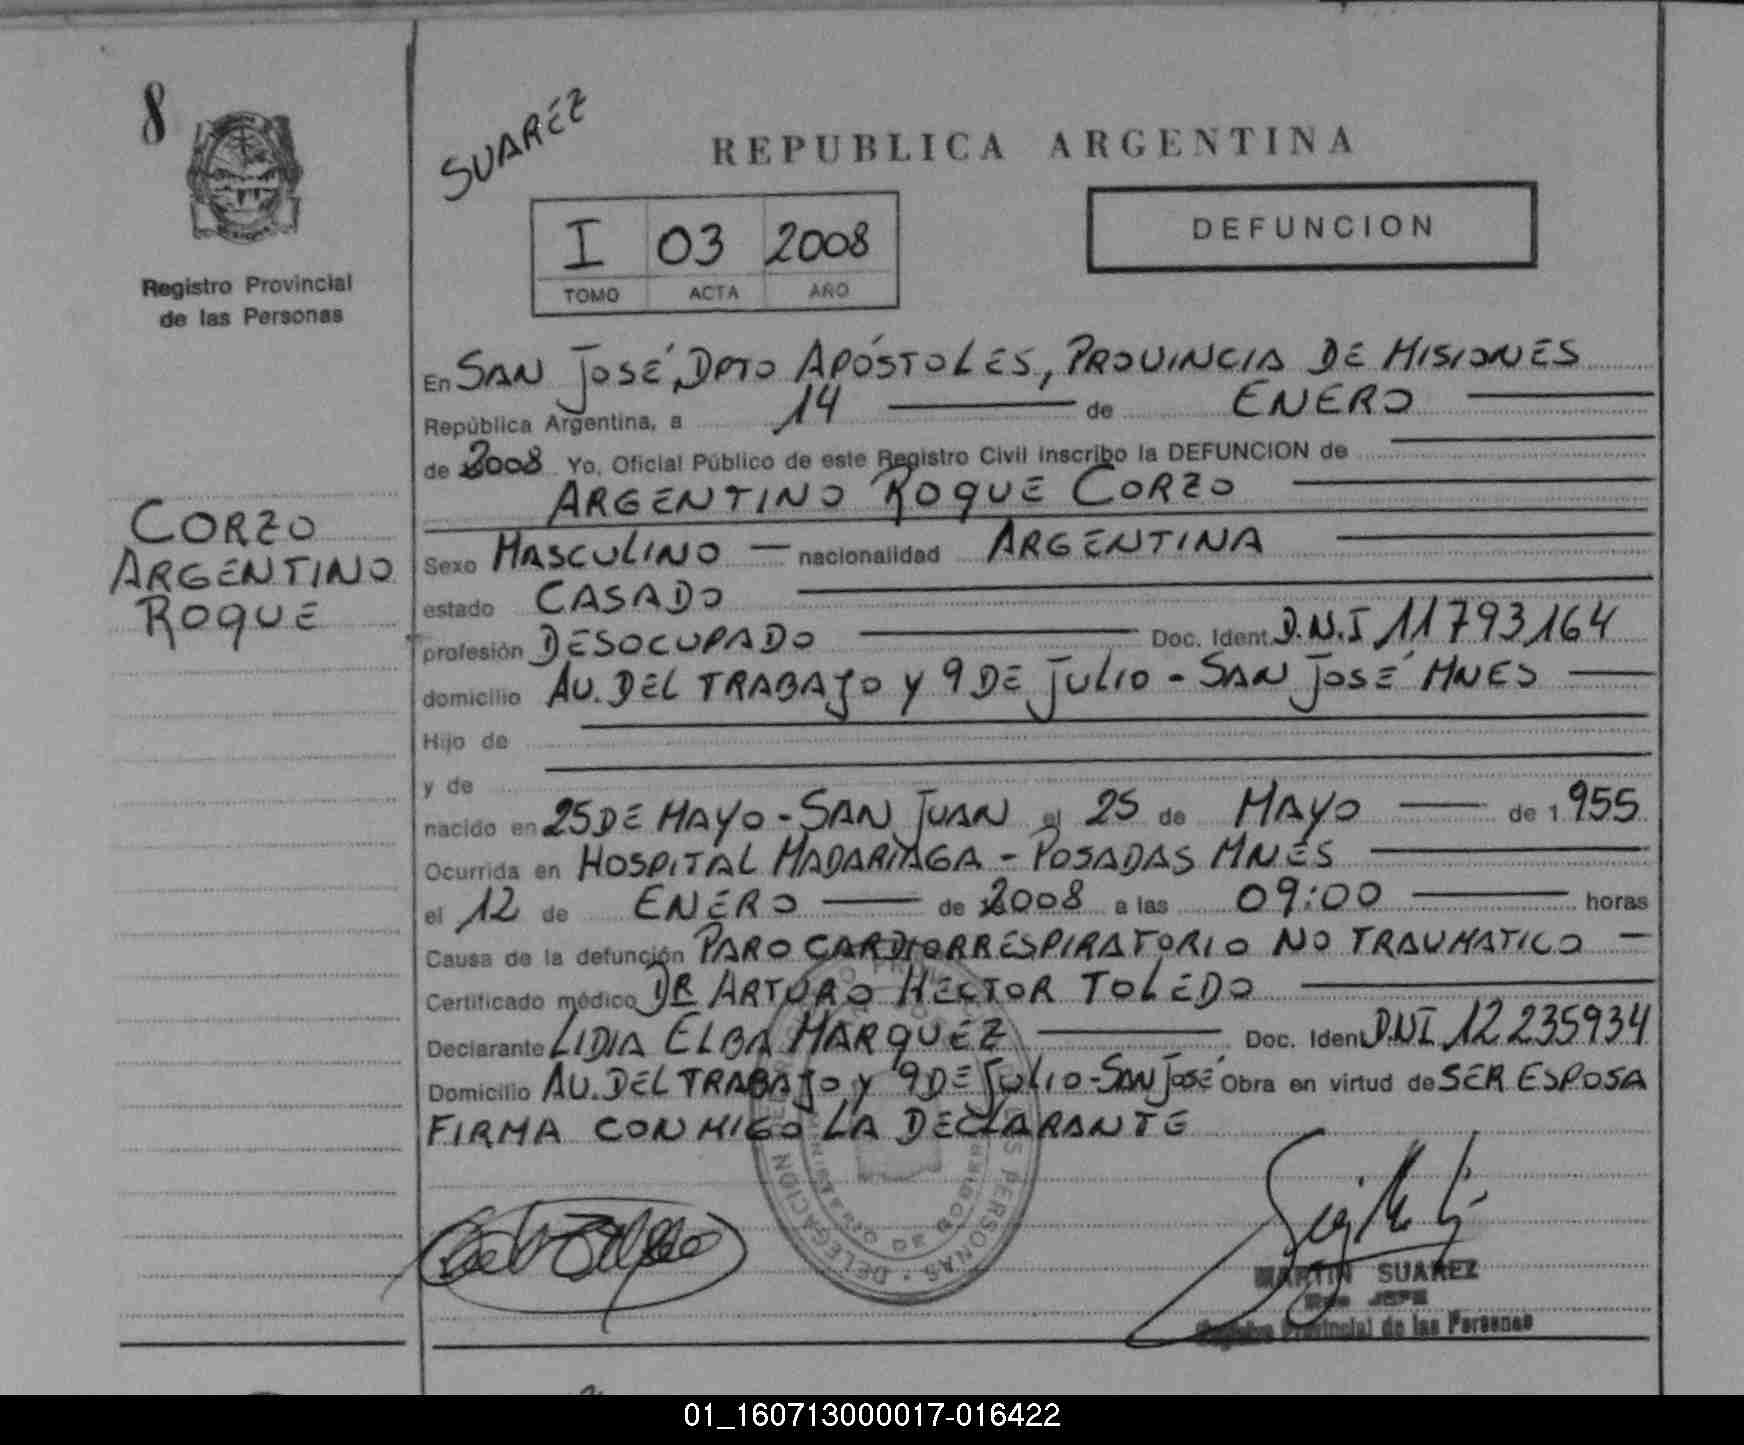 8
Registro Provincial
de las Personas
SUARÉZ
REPUBLICA ARGENTINA
I 03 2008
TOMO ACTA AÑO
DEFUNCION
En SAN JOSÉ, DPTO APÓSTOLES, PROVINCIA DE MISIONES
República Argentina, a 14 de ENERO
de 2008 Yo, Oficial Público de este Registro Civil inscribo la DEFUNCION de
ARGENTINO ROQUE CORZO
CORZO
ARGENTINO
ROQUE
Sexo MASCULINO nacionalidad ARGENTINA
estado CASADO
profesión DESOCUPADO Doc. Ident. D.N.I 11793164
domicilio AV. DEL TRABAJO Y 9 DE JULIO - SAN JOSÉ MNES
Hijo de
y de
nacido en 25 DE MAYO - SAN JUAN el 25 de MAYO de 1.955
Ocurrida en HOSPITAL MADARIAGA - POSADAS MNES
el 12 de ENERO de 2008 a las 09:00 horas
Causa de la defunción PARO CARDIORRESPIRATORIO NO TRAUMATICO
Certificado médico DR ARTURO HECTOR TOLEDO
Declarante LIDIA ELBA MARQUEZ Doc. Ident. DNI 12235934
Domicilio AV. DEL TRABAJO Y 9 DE JULIO - SAN JOSÉ Obra en virtud de SER ESPOSA
FIRMA CONMIGO LA DECLARANTE
PERSONAS · DELEGACION
MARTIN SUAREZ
JEFE
Registro Provincial de las Personas
01_160713000017-016422